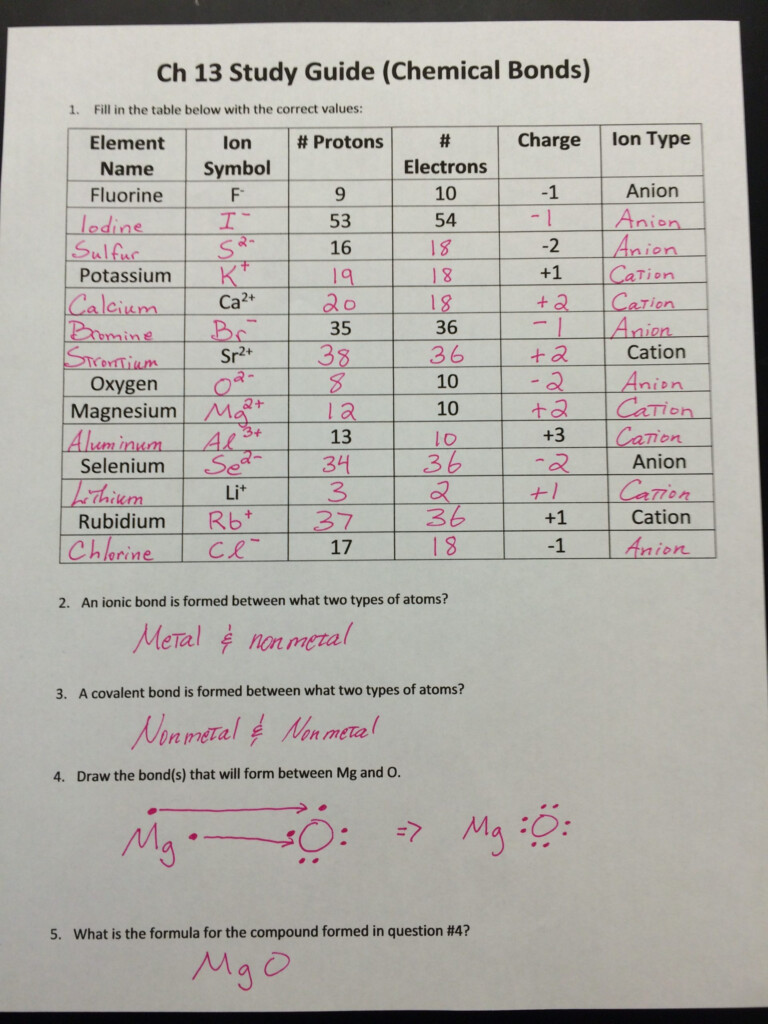 Ch 13 Study Guide (Chemical Bonds)
1. Fill in the table below with the correct values:
Element Name Ion Symbol # Protons # Electrons Charge Ion Type
Fluorine F- 9 10 -1 Anion
Iodine I- 53 54 -1 Anion
Sulfur S2- 16 18 -2 Anion
Potassium K+ 19 18 +1 Cation
Calcium Ca2+ 20 18 +2 Cation
Bromine Br- 35 36 -1 Anion
Strontium Sr2+ 38 36 +2 Cation
Oxygen O2- 8 10 -2 Anion
Magnesium Mg2+ 12 10 +2 Cation
Aluminum Al3+ 13 10 +3 Cation
Selenium Se2- 34 36 -2 Anion
Lithium Li+ 3 2 +1 Cation
Rubidium Rb+ 37 36 +1 Cation
Chlorine Cl- 17 18 -1 Anion
2. An ionic bond is formed between what two types of atoms?
Metal & nonmetal
3. A covalent bond is formed between what two types of atoms?
Nonmetal & Nonmetal
4. Draw the bond(s) that will form between Mg and O.
Mg O => Mg O
5. What is the formula for the compound formed in question #4?
MgO